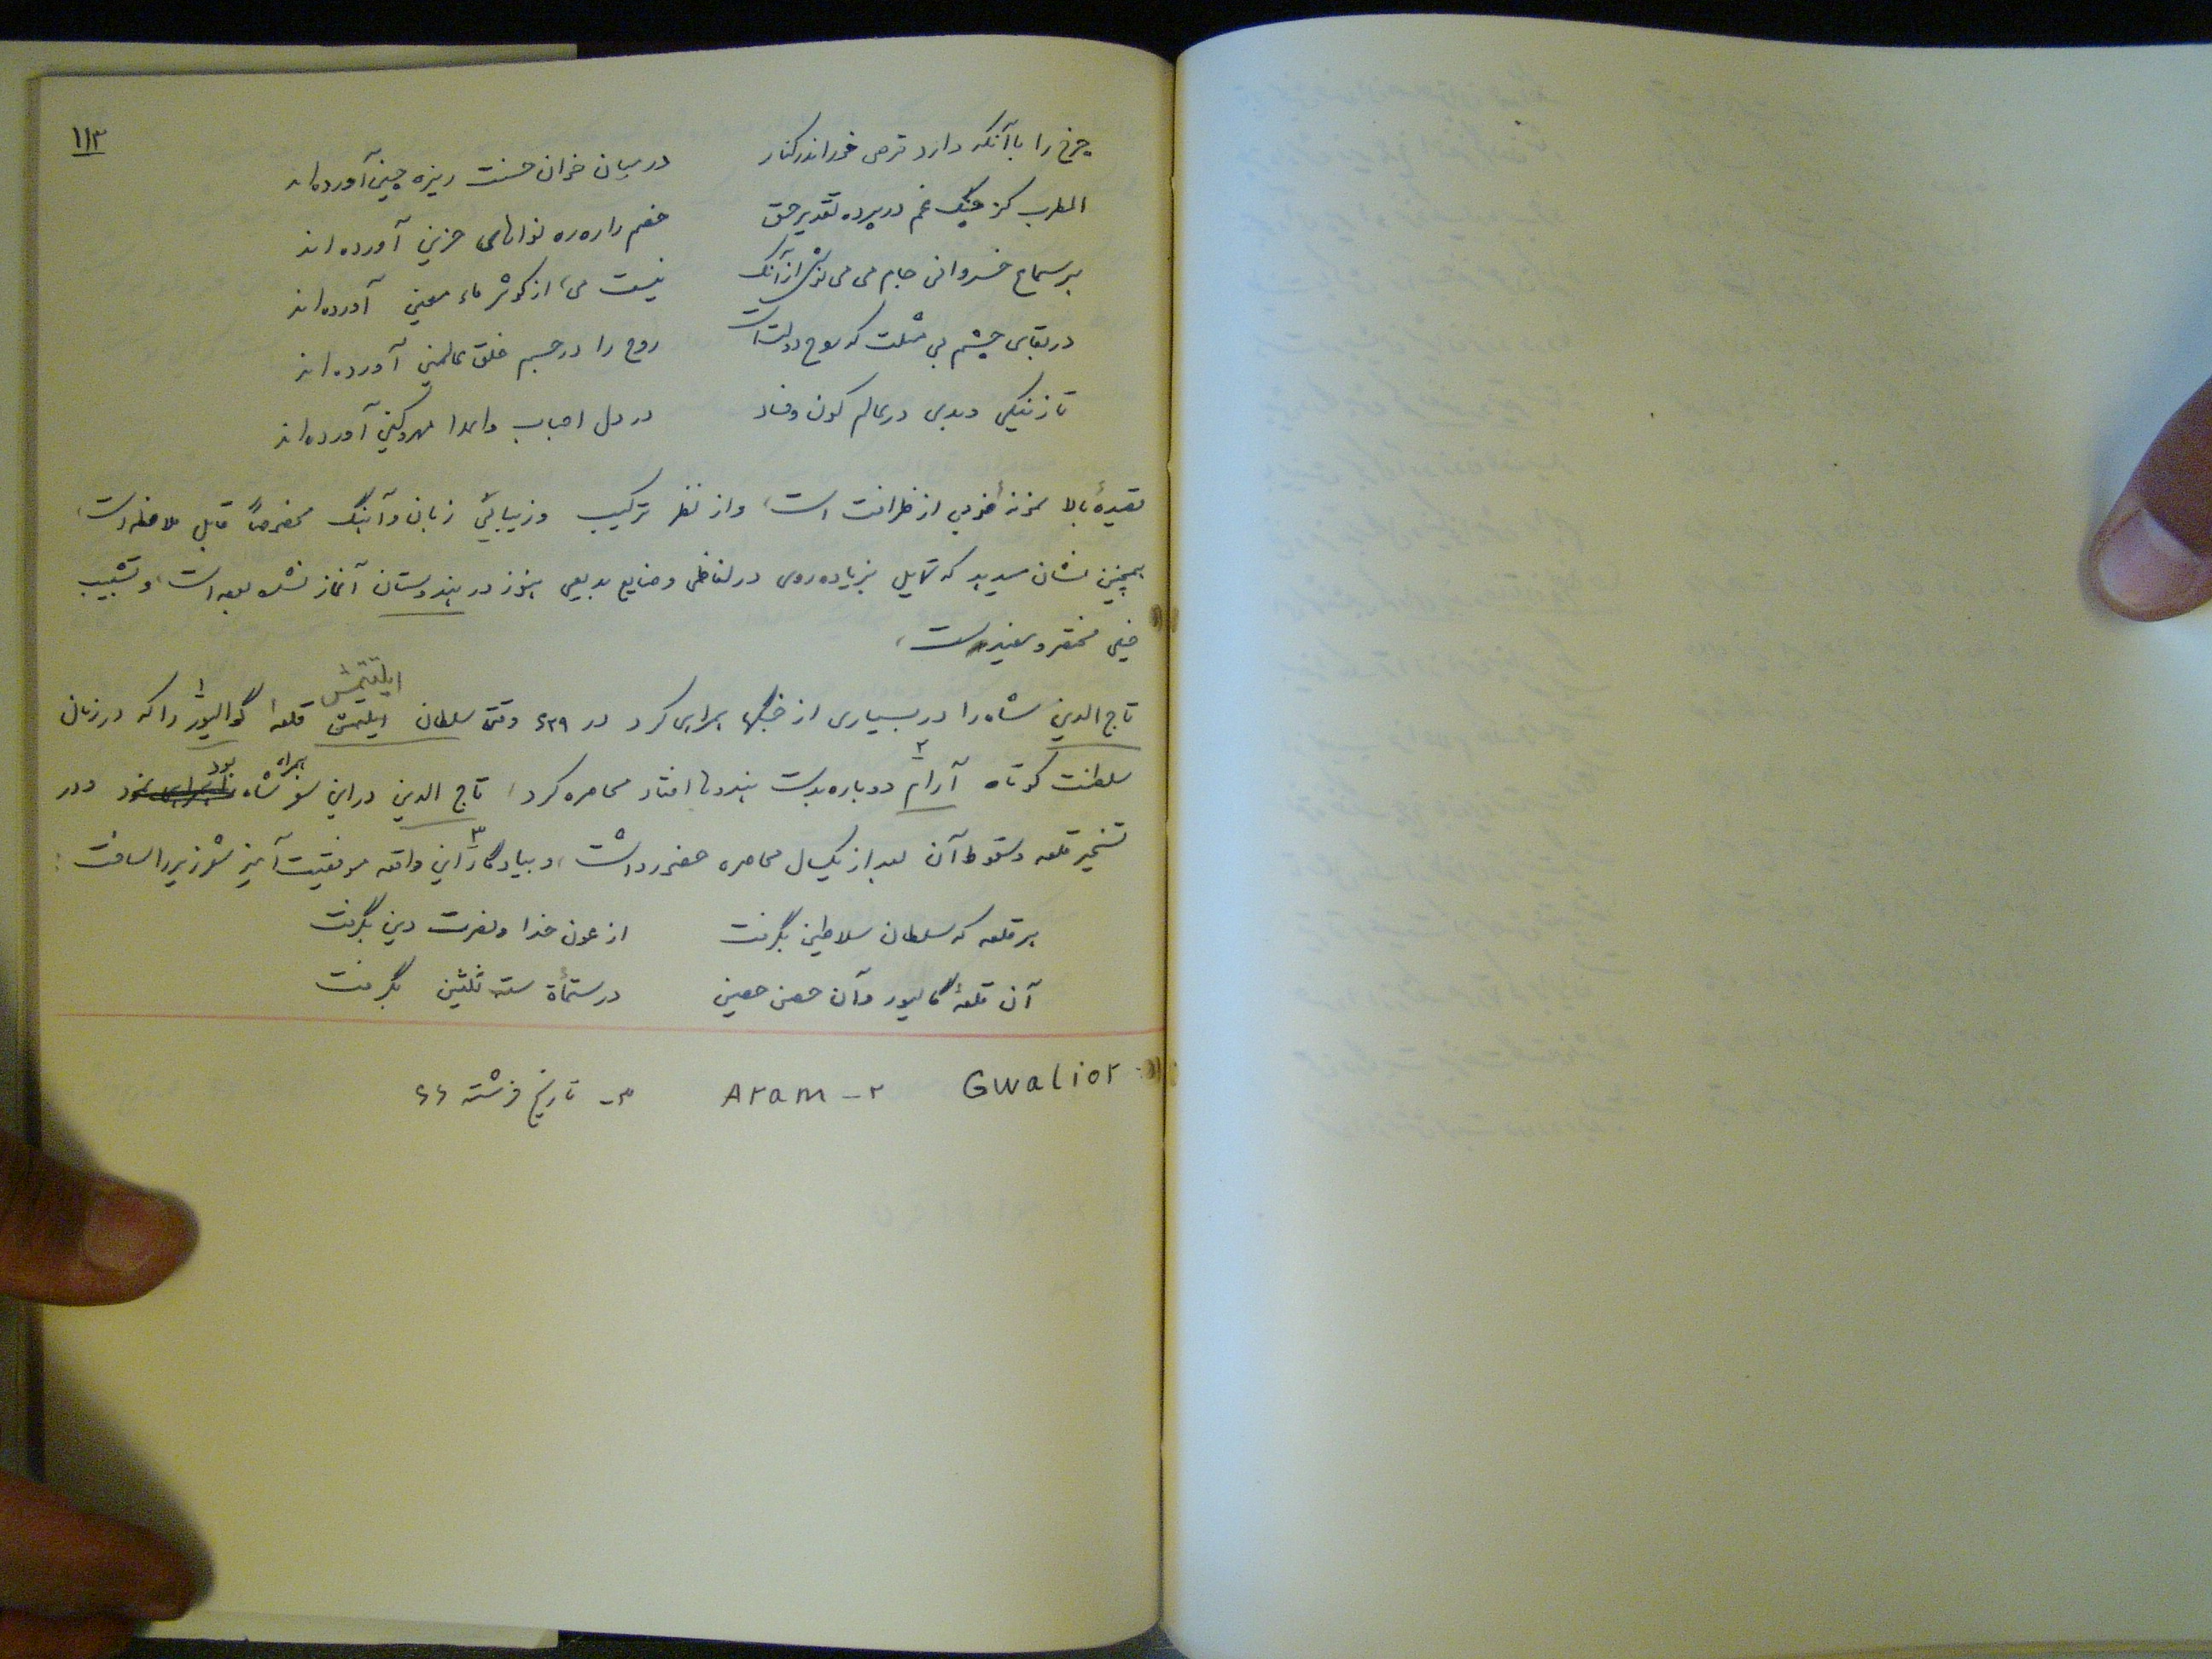 ۱۱۳
چرخ را با آنکه دارد قرص خور اندر کنار در میان خوان حسنت ریزه چین آورده‌اند
المطرب کز چنگ غم در پرده تقدیر حق خصم را ره ره نواهای حزین آورده اند
بر سماع خسروانی جام می می نوش از آنک نیست می، از کوثر ماء معین آورده‌اند
در بقای چشم بی مثلت که روح دولت است روح را در جسم خلق عالمین آورده اند
تا ز نیکی و بدی در عالم کون و فساد در دل احباب و اعدا مهر و کین آورده‌اند
قصیدهٔ بالا نمونهٔ خوبی از ظرافت است، و از نظر ترکیب و زیبائی زبان و آهنگ مخصوصاً قابل ملاحظه است،
همچنین نشان میدهد که تمایل بزیاده روی در لفاظی و صنایع بدیعی هنوز در هندوستان آغاز نشده بوده است، و تشبیب
خیلی مختصر و مفید است،
ایلتتمش
تاج الدین شاه را در بسیاری از جنگها همراهی کرد در ۶۲۹ وقتی سلطان ایلتمش قلعهٔ گوالیور۱ را که در زمان
سلطنت کوتاه آرام۲ دوباره بدست هندوها افتاد محاصره کرد، تاج الدین در این سفر همراه شاه بود و در
تسخیر قلعه و سقوط آن بعد از یکسال محاصره حضور داشت، و بیادگار۳ این واقعه موفقیت آمیز شعر زیر را ساخت:
هر قلعه که سلطان سلاطین بگرفت از عون خدا و نصرت دین بگرفت
آن قلعهٔ گالیور و آن حصن حصین در ستمأة سنه ثلثین بگرفت
Gwalior ۲- Aram ۳- تاریخ فرشته ۶۶